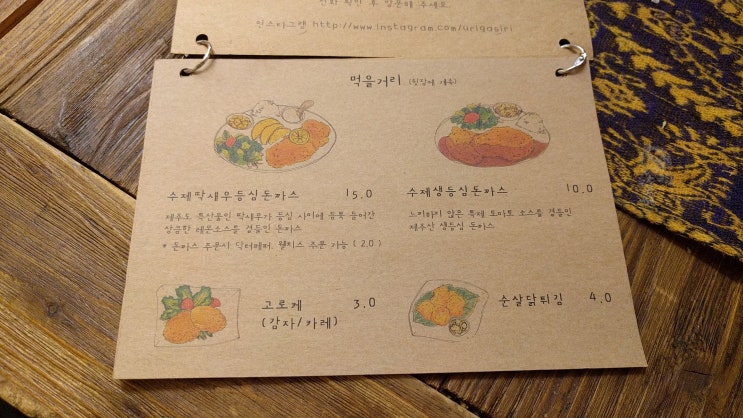 전화 확인 후 입문해 주세요.
인스타그램 http://www.instagram.com/urigasiri
먹을거리
수제딱새우등심돈까스 15.0
제주도 특산물인 딱새우가 등심 사이에 듬뿍 들어간
상큼한 레몬소스를 곁들인 돈까스
* 돈까스 주문시 닥터페퍼, 웰치스 주문 가능 (2.0)
수제생등심돈까스 10.0
느끼하지 않은 특제 토마토 소스를 곁들인
제주산 생등심 돈까스
고로케 3.0
(감자/카레)
순살닭튀김 4.0